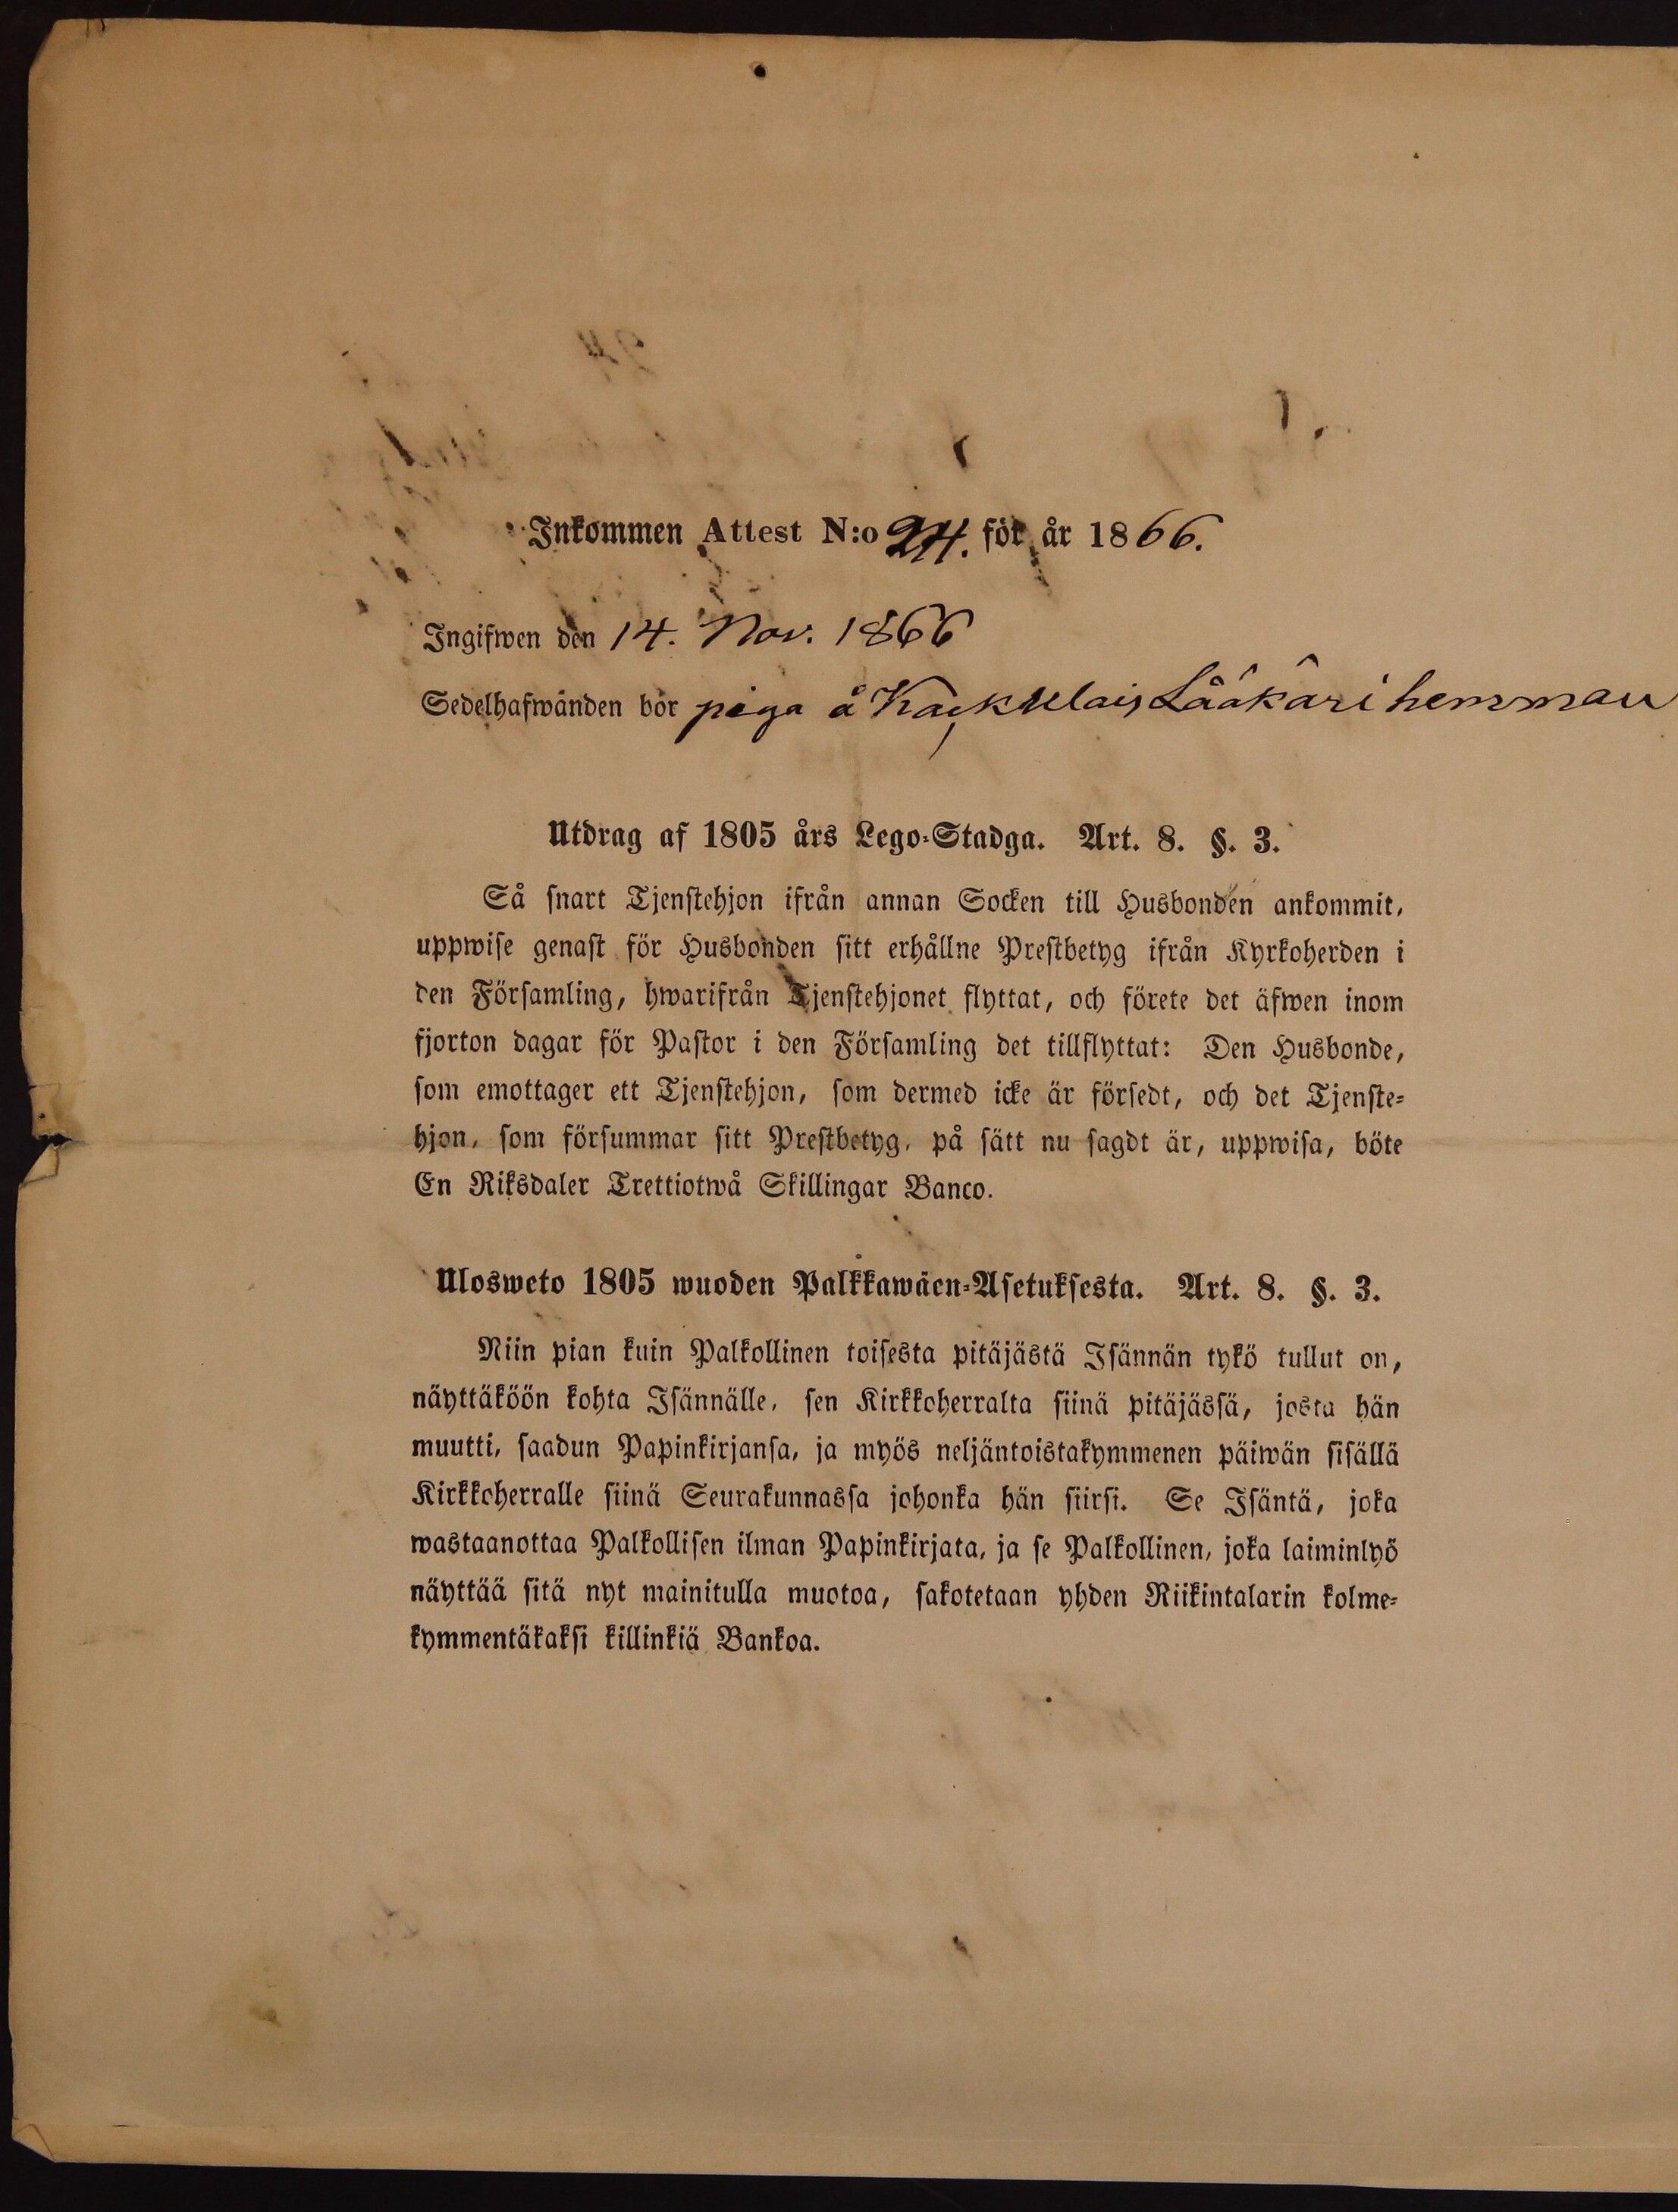 Inkommen Attest N:o 24. för år 1866.
Ingifwen den 14. Nov. 1866
Sedelhafwanden bör piga å Lääkäri hemman
Utdrag af 1805 års Lego-Stadga. Art. 8. §. 3.
Så snart Tjenstehjon ifrån annan Socken till Husbonden ankommit,
uppwise genast för Husbonden sitt erhållne Prestbetyg ifrån Kyrkoherden i
den Församling, hwarifrån Tjenstehjonet flyttat, och förete det äfwen inom
fjorton dagar för Pastor i den Församling det tillflyttat: Den Husbonde,
som emottager ett Tjenstehjon, som dermed icke är försedt, och det Tjenste-
hjon, som försummar sitt Prestbetyg, på sätt nu sagdt är, uppwisa, böte
En Riksdaler Trettiotwå Skillingar Banco.
Ulosweto 1805 wuoden Palkkawäen-Asetuksesta. Art. 8. §. 3.
Niin pian kuin Palkollinen toisesta pitäjästä Isännän tykö tullut on,
näyttäköön kohta Isännälle, sen Kirkkoherralta siinä pitäjässä, josta hän
muutti, saadun Papinkirjansa, ja myös neljäntoistakymmenen päiwän sisällä
Kirkkoherralle siinä Seurakunnassa johonka hän siirsi. Se Isäntä, joka
wastaanottaa Palkollisen ilman Papinkirjata, ja se Palkollinen, joka laiminlyö
näyttää sitä nyt mainitulla muotoa, sakotetaan yhden Riikintalarin kolme-
kymmentäkaksi killinkiä Bankoa.